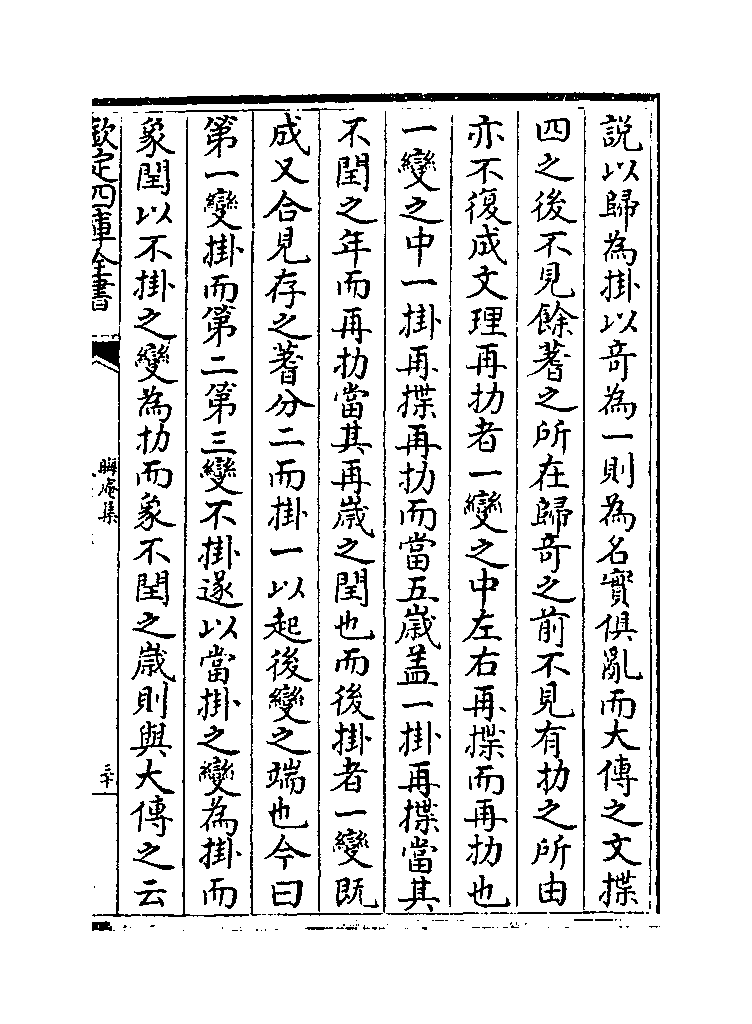 說以歸為掛以奇為一則為名實俱亂而大傳之文揲
四之後不見餘蓍之所在歸奇之前不見有扐之所由
亦不復成文理再扐者一變之中左右再揲而再扐也
一變之中一掛再揲再扐而當五歳盖一掛再揲當其
不閏之年而再扐當其再歳之閏也而後掛者一變既
成又合見存之蓍分二而掛一以起後變之端也今曰
第一變掛而第二第三變不掛遂以當掛之變為掛而
象閏以不掛之變為扐而象不閏之歳則與大傳之云
欽定四庫全書
晦庵集
三十